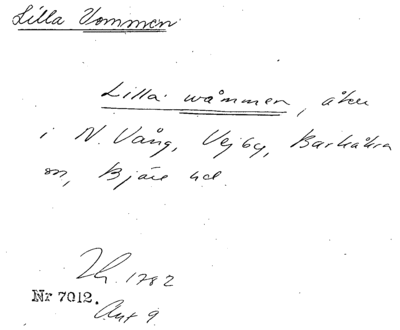 Lilla Vommen
Lilla wåmmen, åker
i N. Vång, Vejby, Barkåkra
sn, Bjäre hd.
Lh. 1782
Nr 7012.
Akt 9.